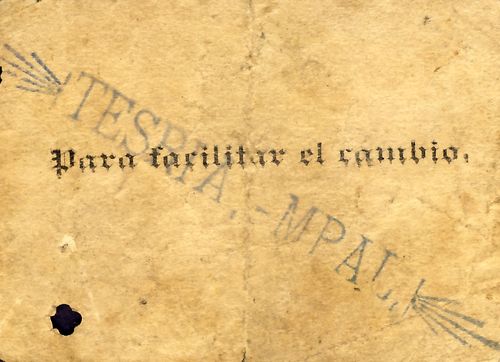 Para facilitar el cambio.
TESRIA.-MPAL.